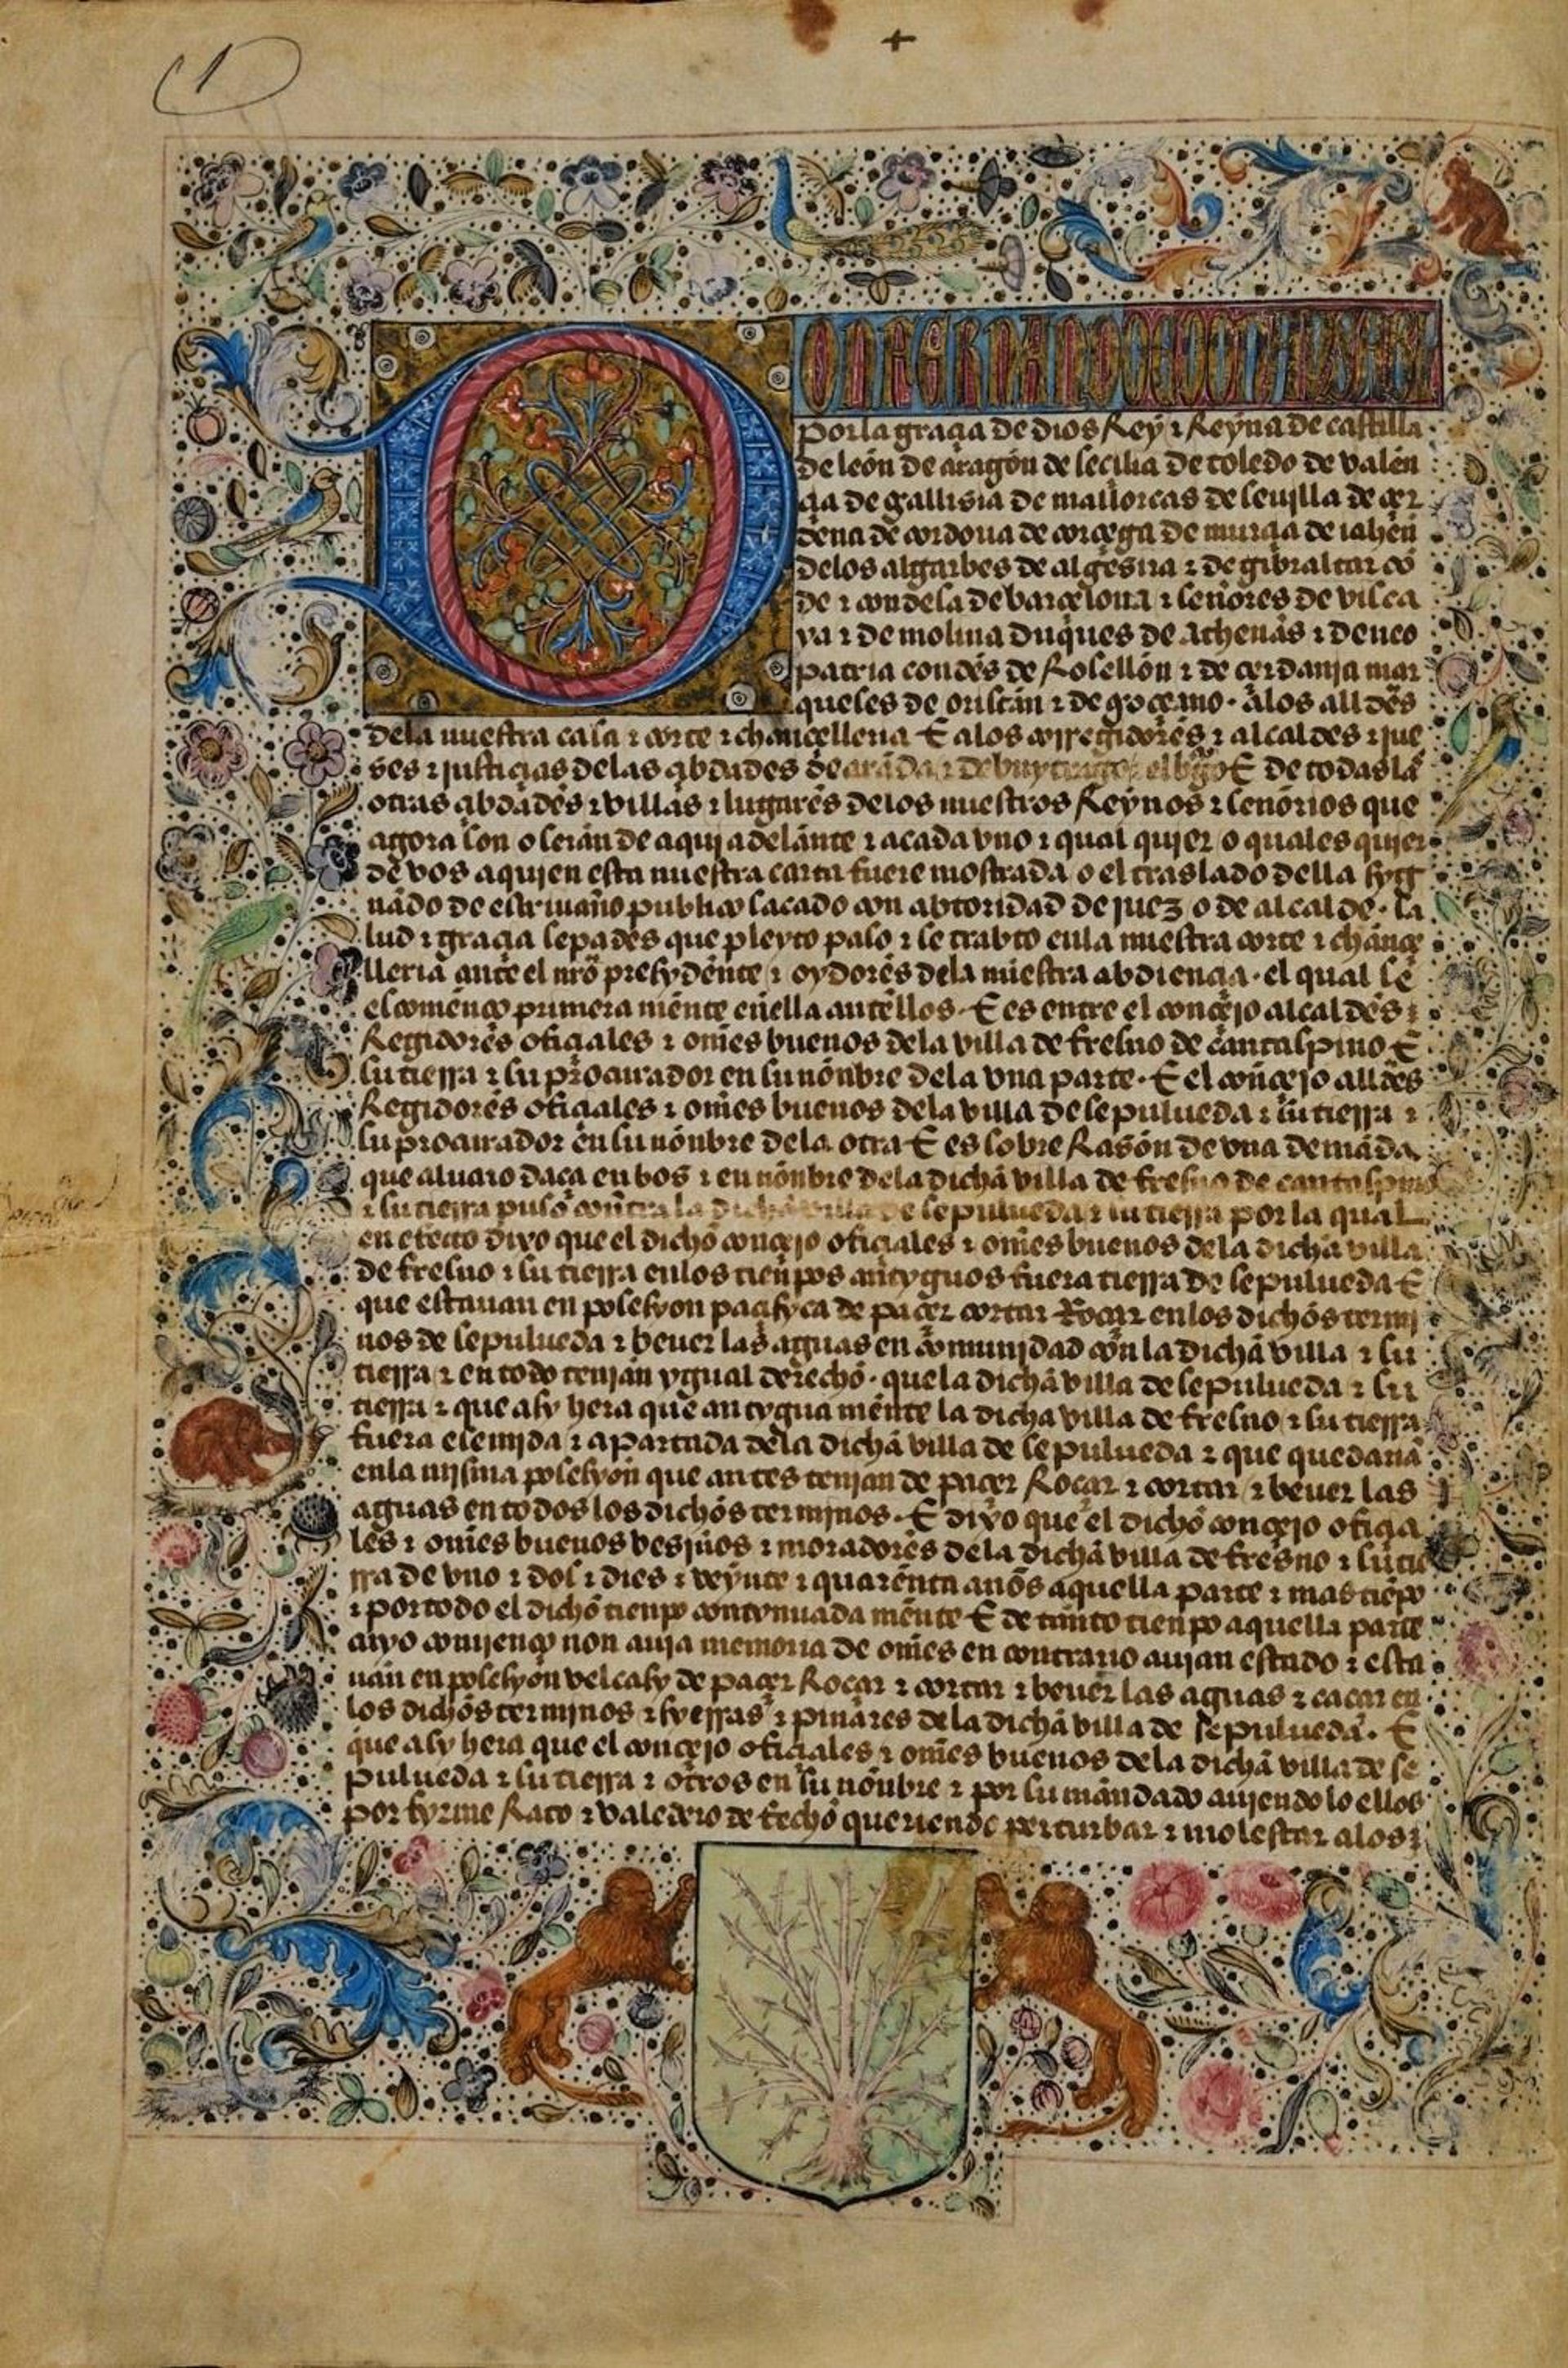 1
DON FERNANDO E DOÑA YSABEL
por la graçia de dios Rey ⁊ Reyna de castilla
de leon de aragon de seçilia de toledo de valen
çia de gallisia de mallorcas de seuilla de çer
dena de cordoua de corçega de murçia de iahen
delos algarbes de algesira ⁊ de gibraltar cō
de ⁊ condesa de barçelona ⁊ señores de visca
ya ⁊ de molina duques de Athenas ⁊ de neo
patria condes de Rosellon ⁊ de çerdanja mar
queses de oristan ⁊ de goçeano · alos allđes
dela nuestra casa ⁊ corte ⁊ chançelleria E alos corregidores ⁊ alcaldes ⁊ jue
ses ⁊ justiçias delas çibdades de E de todas las
otras çibdades ⁊ villas ⁊ lugares delos nuestros Reynos ⁊ señorios que
agora son o seran de aqui adelante ⁊ a cada vno ⁊ qual quier o quales quier
de vos aquien esta nuestra carta fuere mostrada o el traslado della syg
nado de escriuano publico sacado con abtoridad de juez o de alcalde · sa
lud ⁊ graçia sepades que pleyto paso ⁊ se trabto enla nuestra corte ⁊ chançe
lleria ante el nr̄o presydente ⁊ oydores dela nuestra abdiençia · el qual se
começo primera mente enella antellos · E es entre el conçejo alcaldes ⁊
Regidores ofiçiales ⁊ om̄es buenos dela villa de fresno de cantaspino E
su tierra ⁊ su procurador en su nonbre dela vna parte · E el conçejo allđes
Regidores ofiçiales ⁊ om̄es buenos dela villa de sepulueda ⁊ su tierra ⁊
su procurador en su nonbre dela otra E es sobre Rason de vna demāda
que aluaro daça en bos ⁊ en nonbre dela dicha villa de fresno de cantaspino
⁊ su tierra puso contra la dicha villa de sepulueda ⁊ su tierra por la qual
en efecto dixo que el dicho conçejo ofiçiales ⁊ om̄es buenos dela dicha villa
de fresno ⁊ su tierra enlos tienpos antyguos fuera tierra de sepulueda E
que estauan en posesyon paçifyca de paçer cortar Roçar enlos dichos termj
nos de sepulueda ⁊ beuer las aguas en comunjdad con la dicha villa ⁊ su
tierra ⁊ en todo tenjan ygual derecho · que la dicha villa de sepulueda ⁊ su
tierra ⁊ que asy hera que antygua mente la dicha villa de fresno ⁊ su tierra
fuera esemida ⁊ apartada dela dicha villa de sepulueda ⁊ que quedaua
enla mjsma posesyon que antes tenjan de paçer Roçar ⁊ cortar ⁊ beuer las
aguas en todos los dichos termjnos · E dixo que el dicho conçejo ofiçia
les ⁊ om̄es buenos vesjnos ⁊ moradores dela dicha villa de fresno ⁊ su tie
rra de vno ⁊ dos ⁊ dies ⁊ veynte ⁊ quarenta años aquella parte ⁊ mas tiēpo
⁊ por todo el dicho tienpo contynuada mente E de tanto tienpo aquella parte
cuyo comjenço non auja memoria de om̄es en contrario aujan estado ⁊ esta
uan en posesyon vel casy de paçer Roçar ⁊ cortar ⁊ beuer las aguas ⁊ caçar en
los dichos termjnos ⁊ syerras ⁊ pinares dela dicha villa de sepulueda · E
que asy hera que el conçejo ofiçiales ⁊ om̄es buenos dela dicha villa de se
pulueda ⁊ su tierra ⁊ otros en su nonbre ⁊ por su mandado aujendo lo ellos
por fyrme Rato ⁊ valedero de fecho queriendo perturbar ⁊ molestar alos ⁊